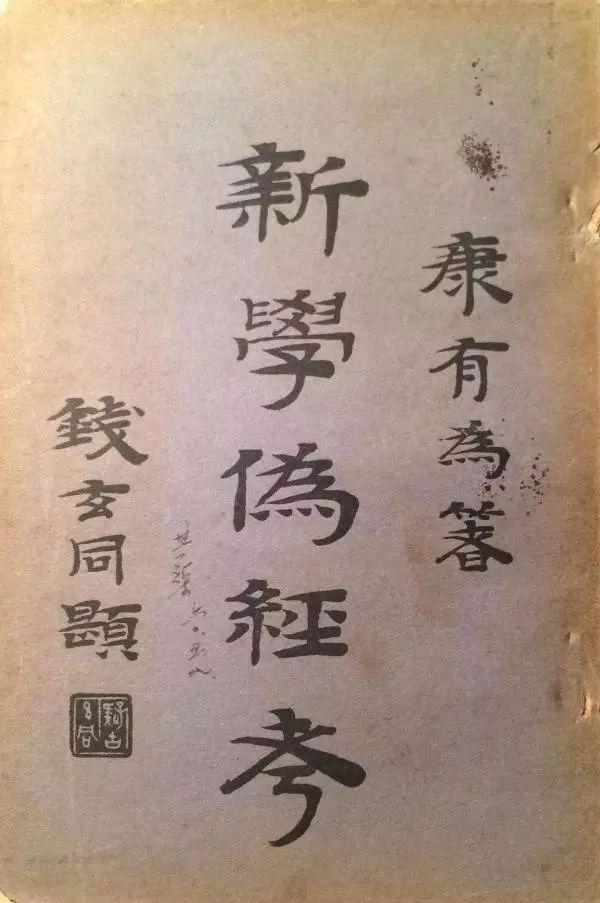 康有為箸
新學偽經考
錢玄同題
疑古玄同